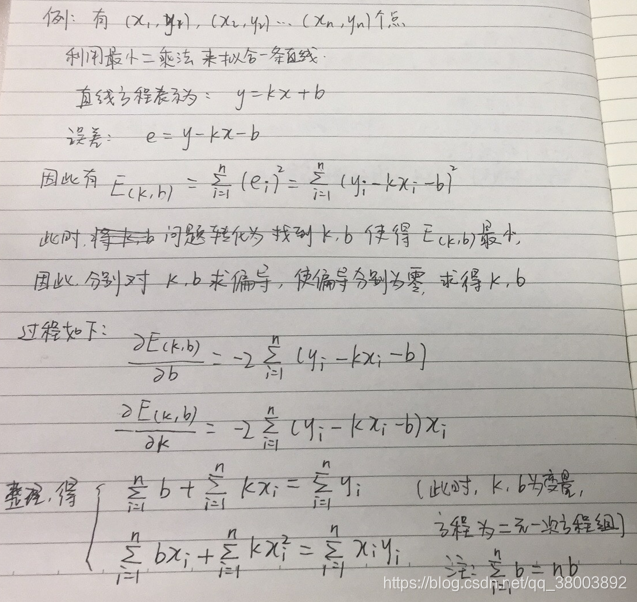 例: 有 (x₁, y₁), (x₂, y₂) ⋯ (xₙ, yₙ) 个点
利用最小二乘法来拟合一条直线.
直线方程表示为: y = kx + b
误差: e = y - kx - b
因此有 E(k,b) = ∑ⁿᵢ₌₁ (eᵢ)² = ∑ⁿᵢ₌₁ (yᵢ - kxᵢ - b)²
此时, 问题转化为找到 k, b 使得 E(k,b) 最小,
因此, 分别对 k, b 求偏导, 使偏导分别为零, 求得 k, b
过程如下:
∂E(k,b)/∂b = -2 ∑ⁿᵢ₌₁ (yᵢ - kxᵢ - b)
∂E(k,b)/∂k = -2 ∑ⁿᵢ₌₁ (yᵢ - kxᵢ - b) xᵢ
整理, 得 { ∑ⁿᵢ₌₁ b + ∑ⁿᵢ₌₁ kxᵢ = ∑ⁿᵢ₌₁ yᵢ
∑ⁿᵢ₌₁ bxᵢ + ∑ⁿᵢ₌₁ kxᵢ² = ∑ⁿᵢ₌₁ xᵢyᵢ
(此时, k, b 为变量,
方程为二元一次方程组)
注: ∑ⁿᵢ₌₁ b = nb
https://blog.csdn.net/qq_38003892